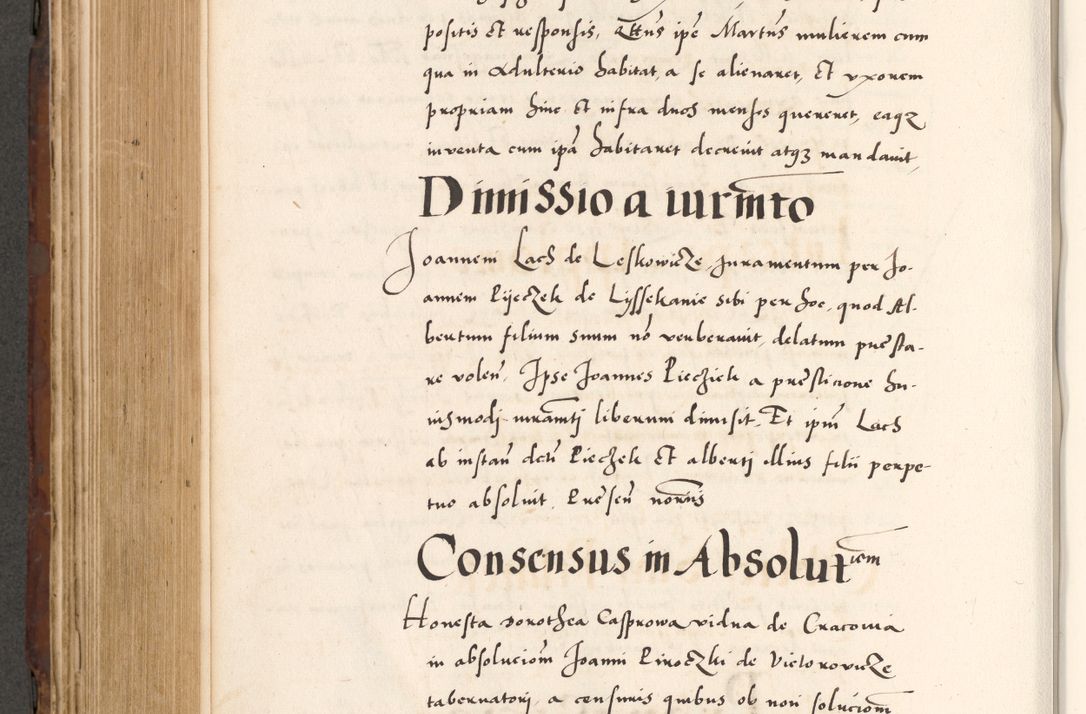 positis et responsis, R̃tus ipe Martinꝰ mulierem cum
qua in adulterio habitat, a se alienaret, et vxorem
propriam hinc et infra duos menses quereret, eaqꝫ
inuenta cum ipa habitaret decreuit atqꝫ mandauit,
Dimissio a iurm̃to
Joannem Lach de Leskowicze Juramentum per Jo-
annem Pijeczek de Lyssekanie sibi per hoc, quod Al-
bertum filium suum nõ verberauit, delatum presta-
re volen̄, Ipse Joannes Pieczek a prestacione hu-
iusmodj iuram̃tj liberum dimisit, Et ipm̄ Lach
ab instan̄ dcti Pieczek et albertj illius filii perpe-
tuo absoluit, Presen̄ notariis
Consensus in Absolutiem
Honesta dorothea Casprowa vidua de Cracouia
in absoluciom̄ Joanni Piroczki de Victorovicze
tabernatorj, a censuris quibus ob non soluciom̄